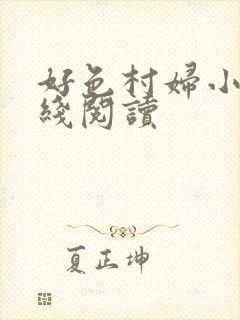 好色村婦小
綫閱讀
夏正坤